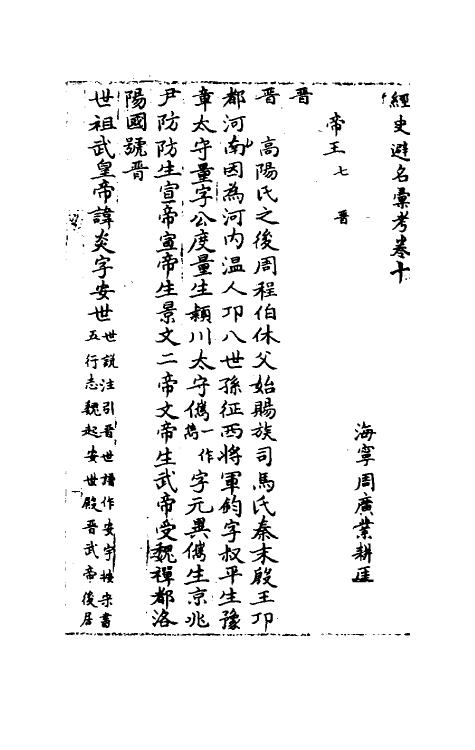 經史避名彙考卷十
海寧周廣業耕厓
帝王七 晉
晉
晉 高陽氏之後周程伯休父始賜族司馬氏秦末殷王卬
都河南因為河内温人卬八世孫征西將軍鈞字叔平生豫
章太守量字公度量生穎川太守儁一作雋字元異儁生京兆
尹防防生宣帝宣帝生景文二帝文帝生武帝受魏禪都洛
陽國號晉
世祖武皇帝諱炎字安世世說注引晉世譜作安宇按宋書
五行志魏起安世殿晉武帝後居